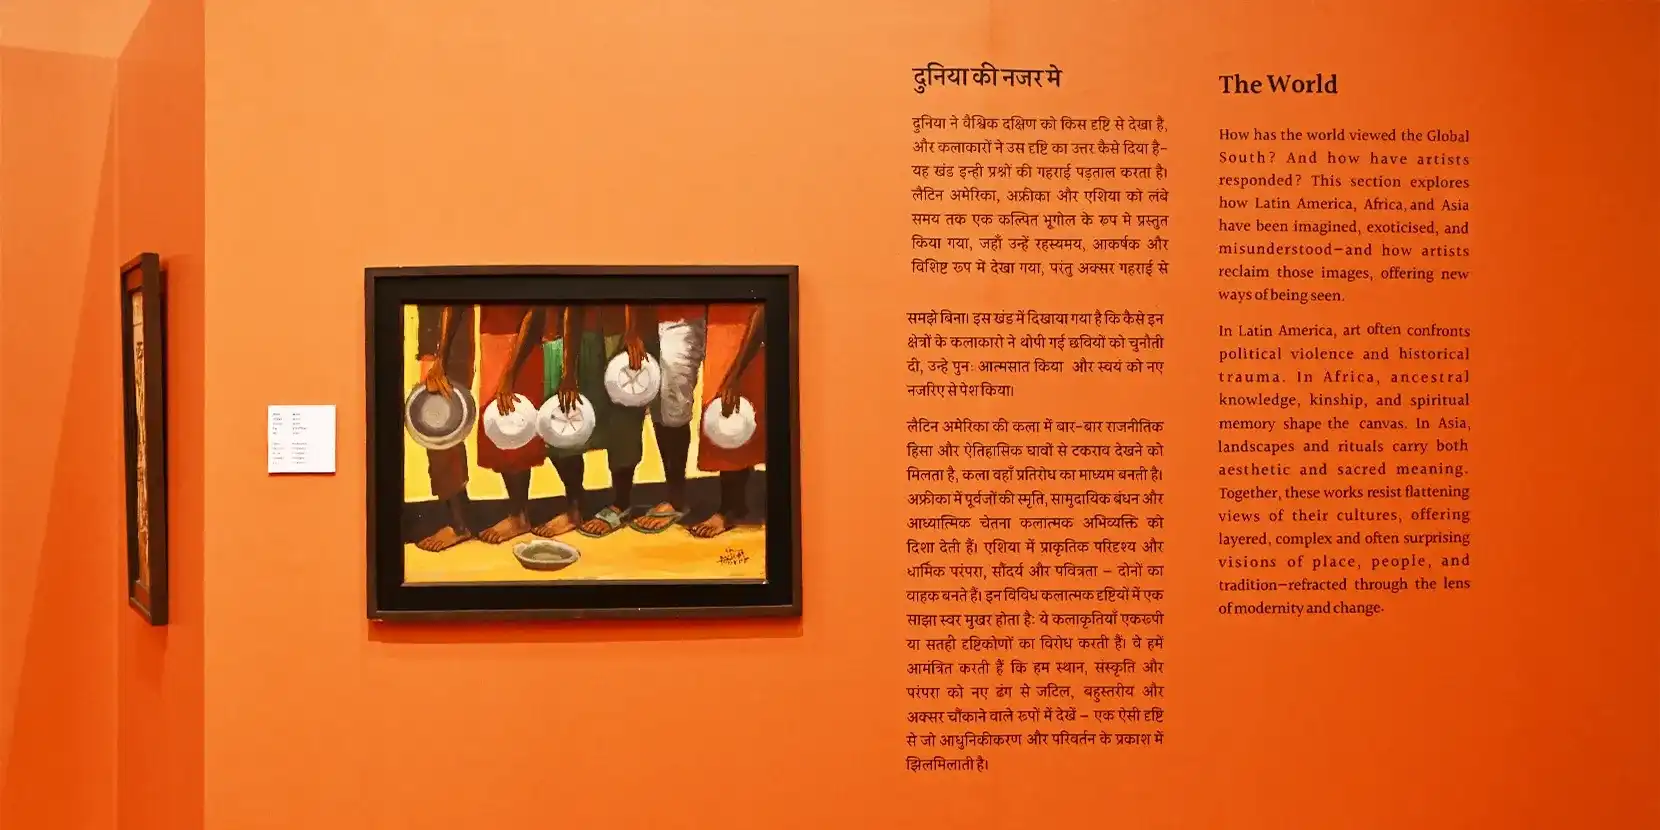 दुनिया की नजर मे
दुनिया ने वैश्विक दक्षिण को किस दृष्टि से देखा है,
और कलाकारों ने उस दृष्टि का उत्तर कैसे दिया है–
यह खंड इन्ही प्रश्नों की गहराई पड़ताल करता है।
लैटिन अमेरिका, अफ्रीका और एशिया को लंबे
समय तक एक कल्पित भूगोल के रूप मे प्रस्तुत
किया गया, जहाँ उन्हें रहस्यमय, आकर्षक और
विशिष्ट रूप में देखा गया, परंतु अक्सर गहराई से
समझे बिना। इस खंड में दिखाया गया है कि कैसे इन
क्षेत्रों के कलाकारो ने थोपी गई छवियों को चुनौती
दी, उन्हे पुनः आत्मसात किया और स्वयं को नए
नजरिए से पेश किया।
लैटिन अमेरिका की कला में बार-बार राजनीतिक
हिंसा और ऐतिहासिक घावों से टकराव देखने को
मिलता है, कला वहाँ प्रतिरोध का माध्यम बनती है।
अफ्रीका में पूर्वजों की स्मृति, सामुदायिक बंधन और
आध्यात्मिक चेतना कलात्मक अभिव्यक्ति को
दिशा देती हैं। एशिया में प्राकृतिक परिदृश्य और
धार्मिक परंपरा, सौंदर्य और पवित्रता – दोनों का
वाहक बनते हैं। इन विविध कलात्मक दृष्टियों में एक
साझा स्वर मुखर होता है: ये कलाकृतियाँ एकरूपी
या सतही दृष्टिकोणों का विरोध करती हैं। वे हमें
आमंत्रित करती हैं कि हम स्थान, संस्कृति और
परंपरा को नए ढंग से जटिल, बहुस्तरीय और
अक्सर चौंकाने वाले रूपों में देखें – एक ऐसी दृष्टि
से जो आधुनिकीकरण और परिवर्तन के प्रकाश में
झिलमिलाती है।
The World
How has the world viewed the Global
South? And how have artists
responded? This section explores
how Latin America, Africa, and Asia
have been imagined, exoticised, and
misunderstood—and how artists
reclaim those images, offering new
ways of being seen.
In Latin America, art often confronts
political violence and historical
trauma. In Africa, ancestral
knowledge, kinship, and spiritual
memory shape the canvas. In Asia,
landscapes and rituals carry both
aesthetic and sacred meaning.
Together, these works resist flattening
views of their cultures, offering
layered, complex and often surprising
visions of place, people, and
tradition—refracted through the lens
of modernity and change.